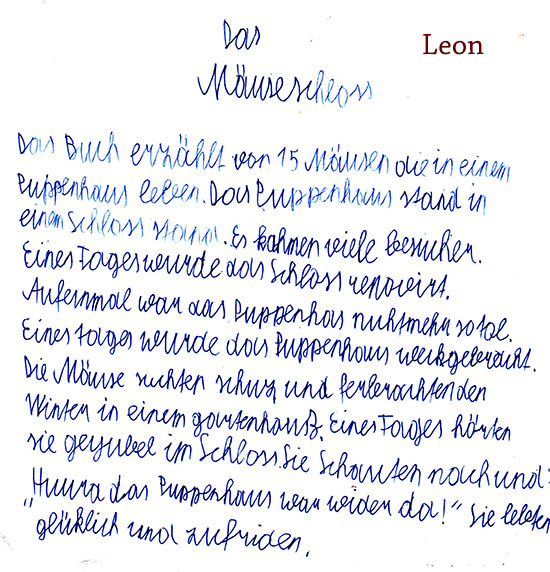 Das
Leon
Mäuseschloss
Das Buch erzählt von 15 Mäusen die in einem
Puppenhaus leben. Das Puppenhaus stand in
einem Schloss stand. Es kahmen viele besucher.
Eines Tages wurde das Schloss renovirt.
Aufeinmal war das Puppenhas nichtmehr so tol.
Eines tages wurde das Puppenhaus weckgebracht.
Die Mäuse suchten schuz und ferbrachten den
Winter in einem gartenhauß. Eines Tages hörten
sie geyubel im Schloss. Sie Schauten nach und:
"Huura das Puppenhaus war wider da!" Sie lebten
glücklich und zufriden.